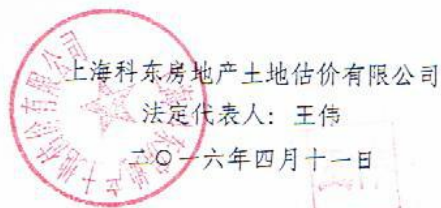 上海科东房地产土地估价有限公司
法定代表人：王伟
二〇一六年四月十一日